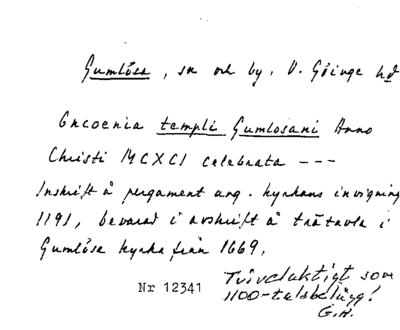 Gumlösa, sn och by, V. Göinge hd
Encoenia templi Gumlosani Anno
Christi MCXCI celebrata ---
Inskrift å pergament ang. kyrkans invigning
1191, bevarad i avskrift å trätavla i
Gumlösa kyrka från 1669.
Tvivelaktigt som
1100-talsbelägg!
Nr 12341
G.H.